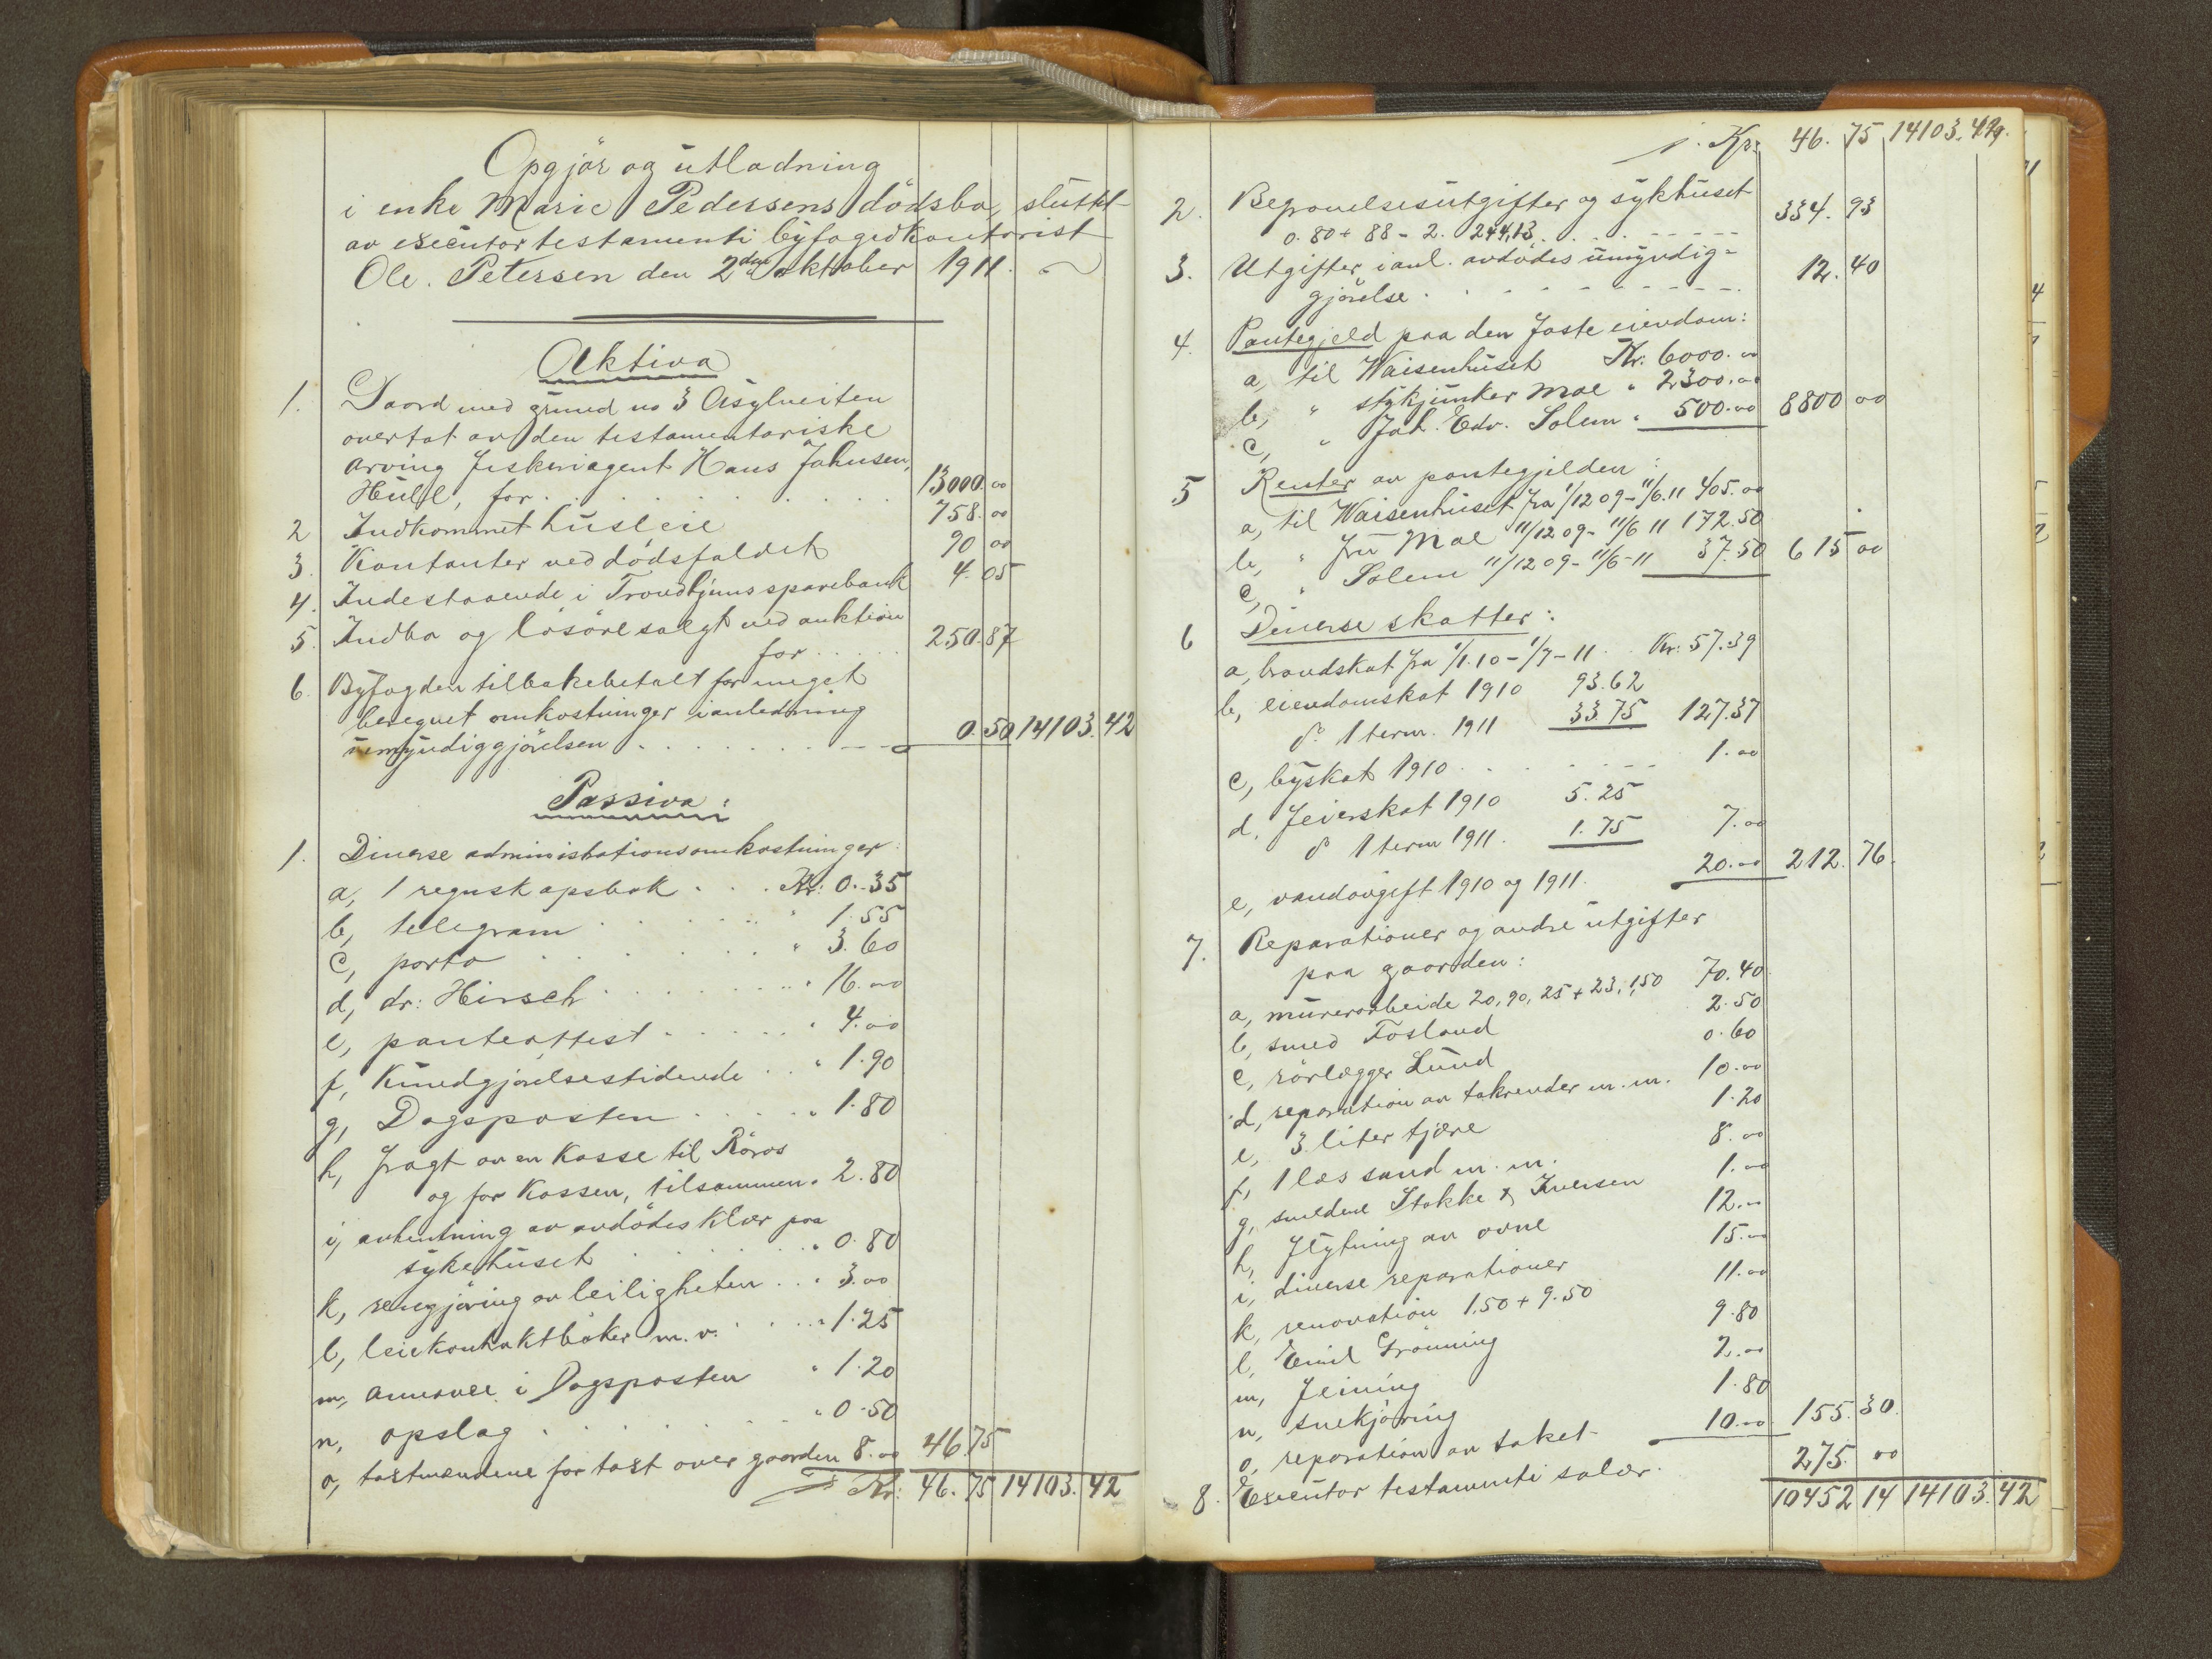 Opgjör og utlodning
i enke Marie Pedersens dödsbo, sluttet
av executor testamenti byfogedkontorist
Ole. Petersen den 2den oktober 1911.
Aktiva
1. Gaard med grund no 3 Asylveiten
overtat av den testamentariske
arving fiskeriagent Hans Johnsen,
Hull, for . . . . . . . . . 13000.00
2 Indkommet husleie 758.00
3. Kontanter ved dödsfaldet 90 00
4. Indestaaende i Trondhjems sparebank 4.05
5. Indbo og lösöre solgt ved auktion
for . . . . . 250.87
6. Byfogden tilbakebetalt for meget
beregnet omkostninger i anledning
umyndiggjörelsen . . . . . . . 0.50 14103.42
Passiva:
1. Diverse administrationsomkostninger:
a, 1 regnskapsbok . . . Kr: 0.35
b, telegram . . . . . . " 1.55
c, porto . . . . . . . " 3.60
d, dr: Hirsch . . . . . . . " 16.00
e, panteattest . . . . . . " 4.00
f, Kundgjörelsestidende . . " 1.90
g, Dagsposten . . . . . " 1.80
h, fragt av en kasse til Röros
og for kassen, tilsammen " 2.80
i, avhentning av avdödes klær paa
sykehuset . . . . . . . " 0.80
k, rengjöring av leiligheten . . " 3.00
l, leiekontraktböker m. v. . . . " 1.25
m, annonce i Dagsposten " 1.20
n, opslag . . . . . . . " 0.50
o, takstmændene for takst over gaarden 8.00 46.75
Kr: 46.75 14103.42
Kr: 46.75 14103.42
2. Begravelsesutgifter og sykhuset
0.80 + 88 - 2. 244,13 . . . . 334.93
3. Utgifter i anl. avdödes umyndig-
gjörelse . . . . . . . . 12.40
4. Pantegjeld paa den faste eiendom:
a, til Waisenhuset Kr: 6000.00
b, " stykjunker Moe " 2300.00
c, " Joh. Edv. Solem " 500.00 8800 00
5 Renter av pantegjelden:
a, til Waisenhuset fra 11/12 09 - 11/6.11 405.00
b, " fru Moe 11/12 09 - 11/6 11 172.50
c, " Solem 11/12 09 - 11/6-11 37.50 615 00
6 Diverse skatter:
a, brandskat fra 1/1.10 - 1/7-11 . . Kr: 57.39
b, eiendomskat 1910 93.62
do 1 term. 1911 33.75 127.37
c, byskat 1910 . . . . . . 1.00
d, feierskat 1910 5.25
do 1 term 1911. 1.75 7.00
e, vandavgift 1910 og 1911. 20.00 212.76.
7. Reparationer og andre utgifter
paa gaarden:
a, murerarbeide 20,90, 25 + 23, 1,50 70.40
b, smed Fosland 2.50
c, rörlægger Lund 0.60
d, reparation av takrender m. m. 10.00
e, 3 liter tjære 1.20
f, 1 læs sand m. m. 8.00
g, smedene Stokke & Iversen 1.00
h, flytning av ovne 12.00
i, diverse reparationer 15.00
k, renovation 1.50 + 9.50 11.00
l, Emil Grönning 9.80
m, feining 2.00
n, snekjöring 1.80
o, reparation av taket 10.00 155.30.
8. Executor testamenti salær. 275.00
10452 14 14103.42